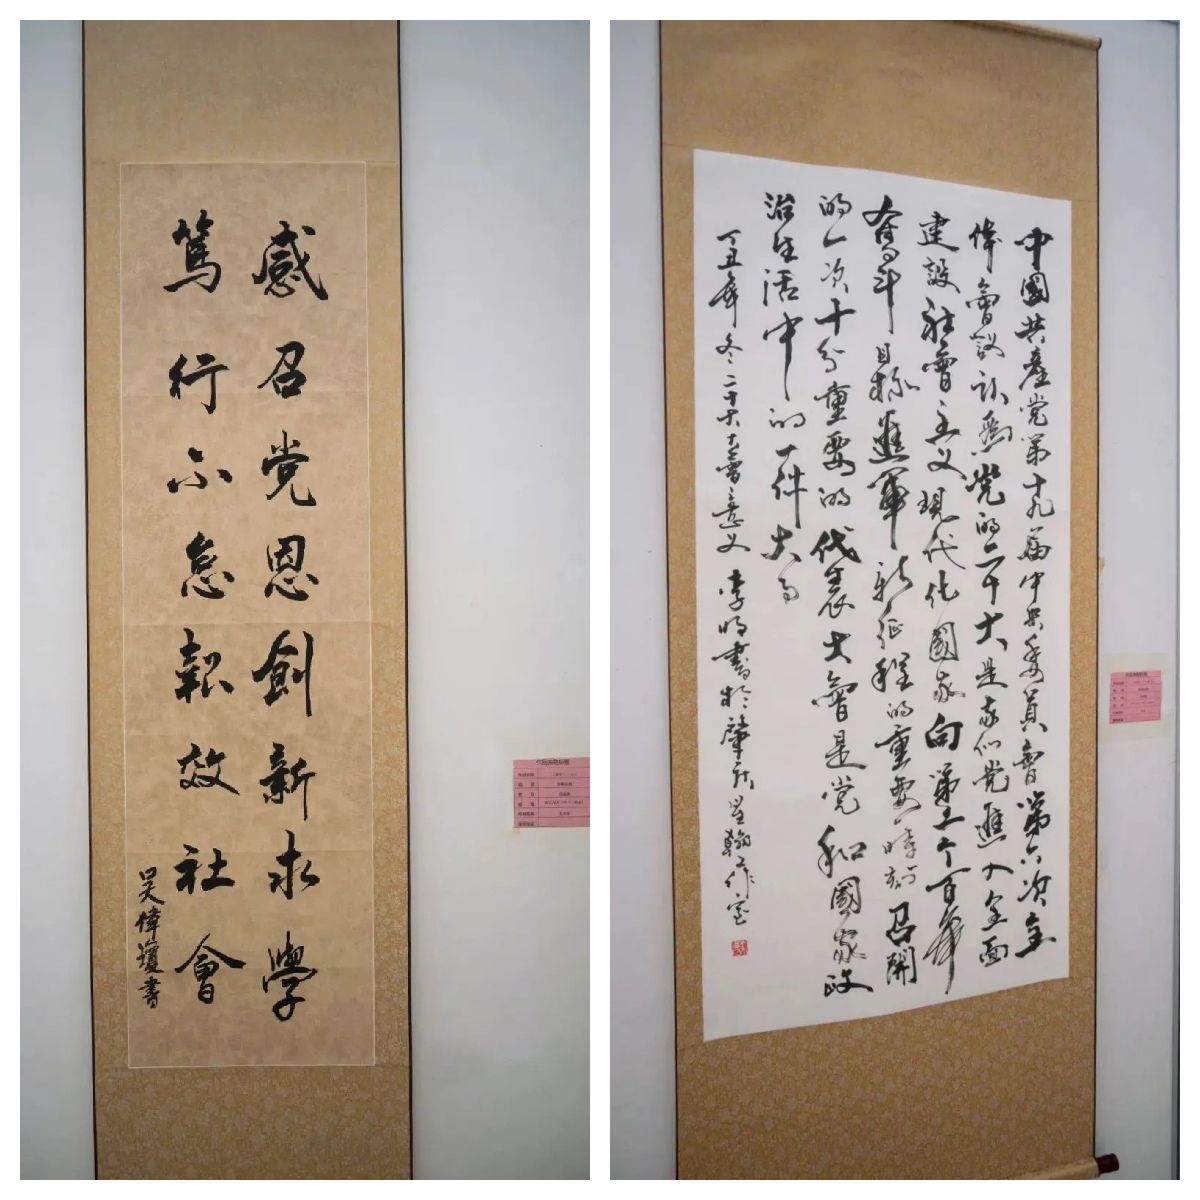 感召党恩創新求學
篤行不怠報效社會
吴偉瓊書
中國共產党第十九届中央委員會第六次全
体會議认為党的二十大是我们党進入全面
建設社會主义現代化國家向第二个百年
奮斗目标進軍新征程的重要時刻召開
的一次十分重要的代表大會是党和國家政
治生活中的一件大事
丑年冬二十大大會意义 李明書於肇 星翰作室